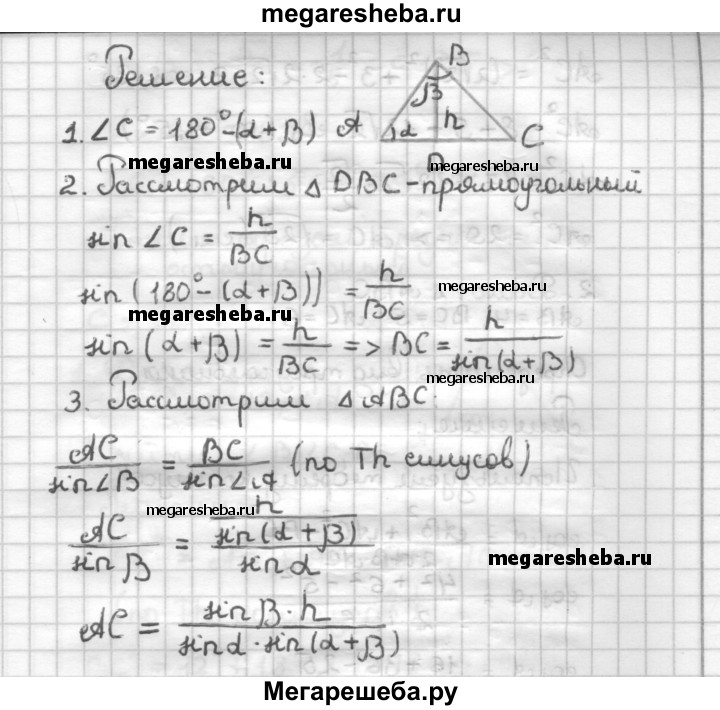 megaresheba.ru
Решение:
B
β
1. ∠C = 180° - (α + β) A α h C
megaresheba.ru megaresheba.ru
D
2. Рассмотрим △ DBC - прямоугольный
sin ∠C = h / BC
megaresheba.ru
sin (180° - (α + β)) = h / BC
megaresheba.ru
sin (α + β) = h / BC => BC = h / sin(α + β)
megaresheba.ru
3. Рассмотрим △ ABC.
AC / sin∠B = BC / sin∠A (по Th синусов)
megaresheba.ru
AC / sin β = h / sin(α + β) / sin α
megaresheba.ru
AC = sin β · h / sin α · sin(α + β)
Мегарешеба.ру